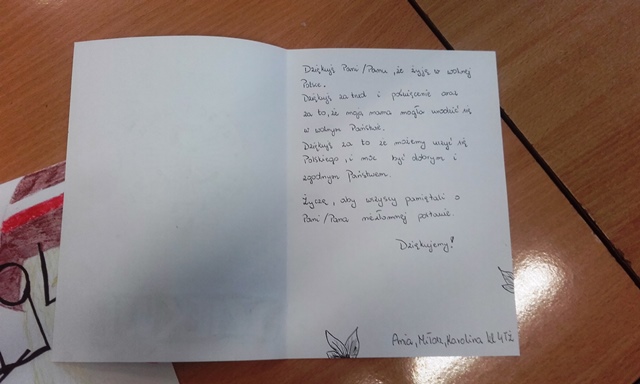 Dziękuję Pani/Panu, że żyję w wolnej
Polsce.
Dziękuję za trud i poświęcenie oraz
za to, że moja mama mogła urodzić się
w wolnym Państwie.
Dziękuję za to że możemy uczyć się
Polskiego, i móc być dobrym i
zgodnym Państwem.
Życzę, aby wszyscy pamiętali o
Pani/Pana niezłomnej postawie.
Dziękujemy!
Ania, Miłosz, Karolina kl 4